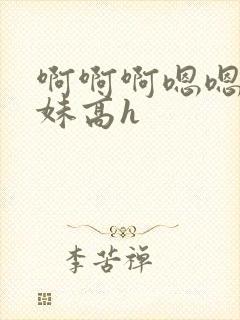 啊啊啊嗯嗯
妹高h
李苦禅